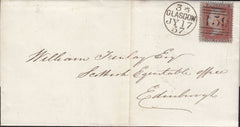 3
GLASGOW
JY 17
57
159
William Finlay Esq
Scottish Equitable office
Edinburgh